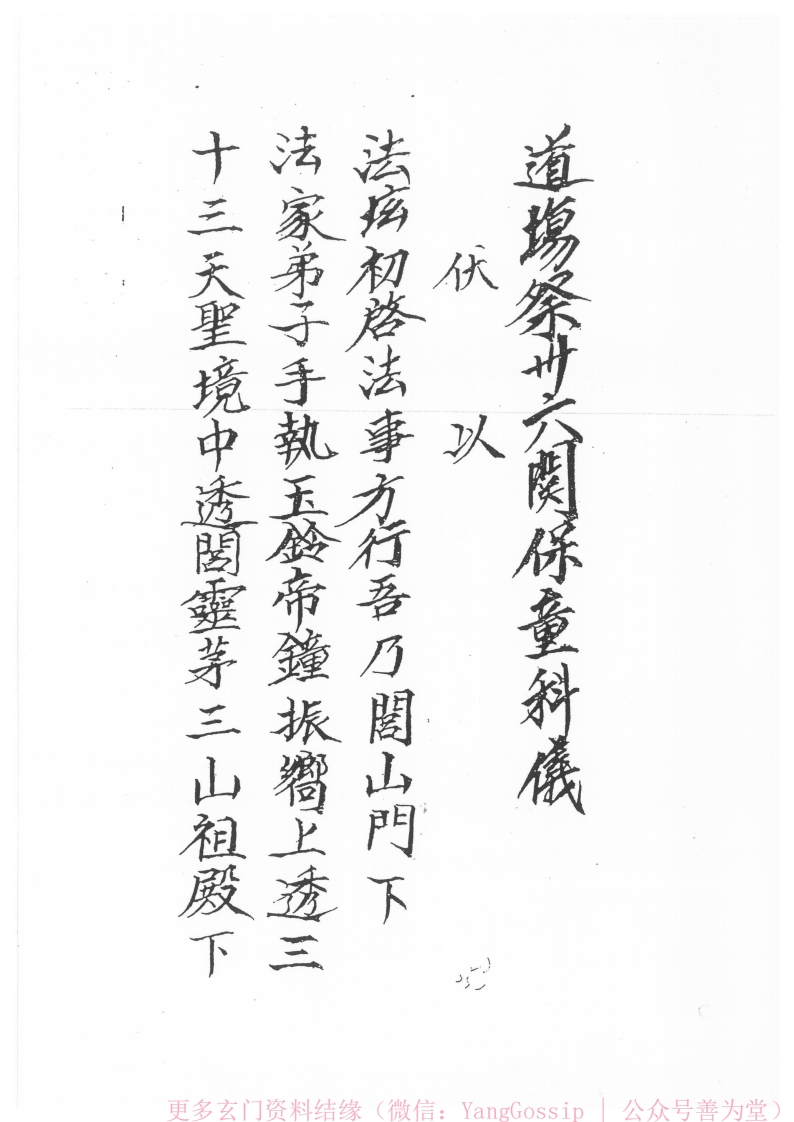 道塲祭卅六関保童科儀
伏以
法壇初啓法事方行吾乃閭山門下
法家弟子手執玉鈴帝鐘振嚮上透三
十三天聖境中透閭靈茅三山祖殿下
更多玄门资料结缘（微信：YangGossip | 公众号善为堂）